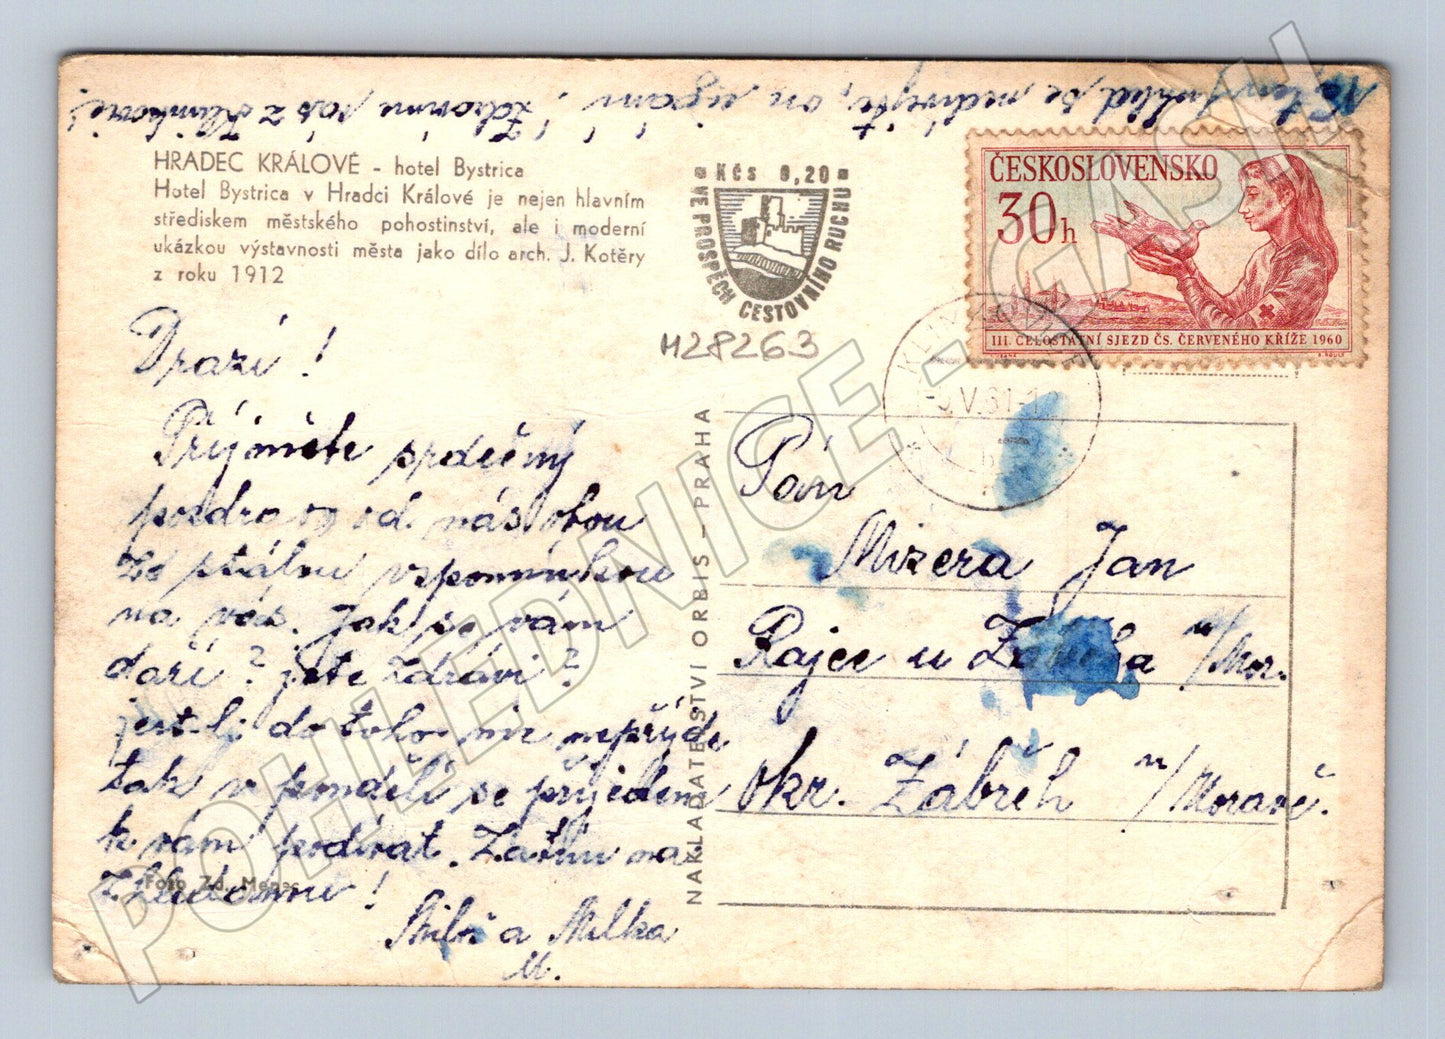 Na ten vzhled se nedivejte, on
zdravíme vás z Klimkovic!
HRADEC KRÁLOVÉ - hotel Bystrica
Hotel Bystrica v Hradci Králové je nejen hlavním
střediskem městského pohostinství, ale i moderní
ukázkou výstavnosti města jako dílo arch. J. Kotěry
z roku 1912
Kčs 0,20
VE PROSPĚCH CESTOVNÍHO RUCHU
M28263
ČESKOSLOVENSKO
30h
III. CELOSTÁTNÍ SJEZD ČS. ČERVENÉHO KŘÍŽE 1960
KLIMKOVICE
V.61
Drazí!
Príjměte srdečný
pozdrav od nás obou
ze stálou vzpomínkou
na vás. Jak se vám
daří? jste zdrávi?
jest-li do toho nic nepřijde
tak v pondělí se přijedem
k vám podívat. Zatím na
zhledanou!
Miloš a Milka
M.
Foto Zd. Menec
NAKLADATELSTVÍ ORBIS - PRAHA
Pán
Mizera Jan
Rajec u Zábřeha n/Mor.
okr. Zábřeh n/Moravě.
POHLEDNICE - GASH